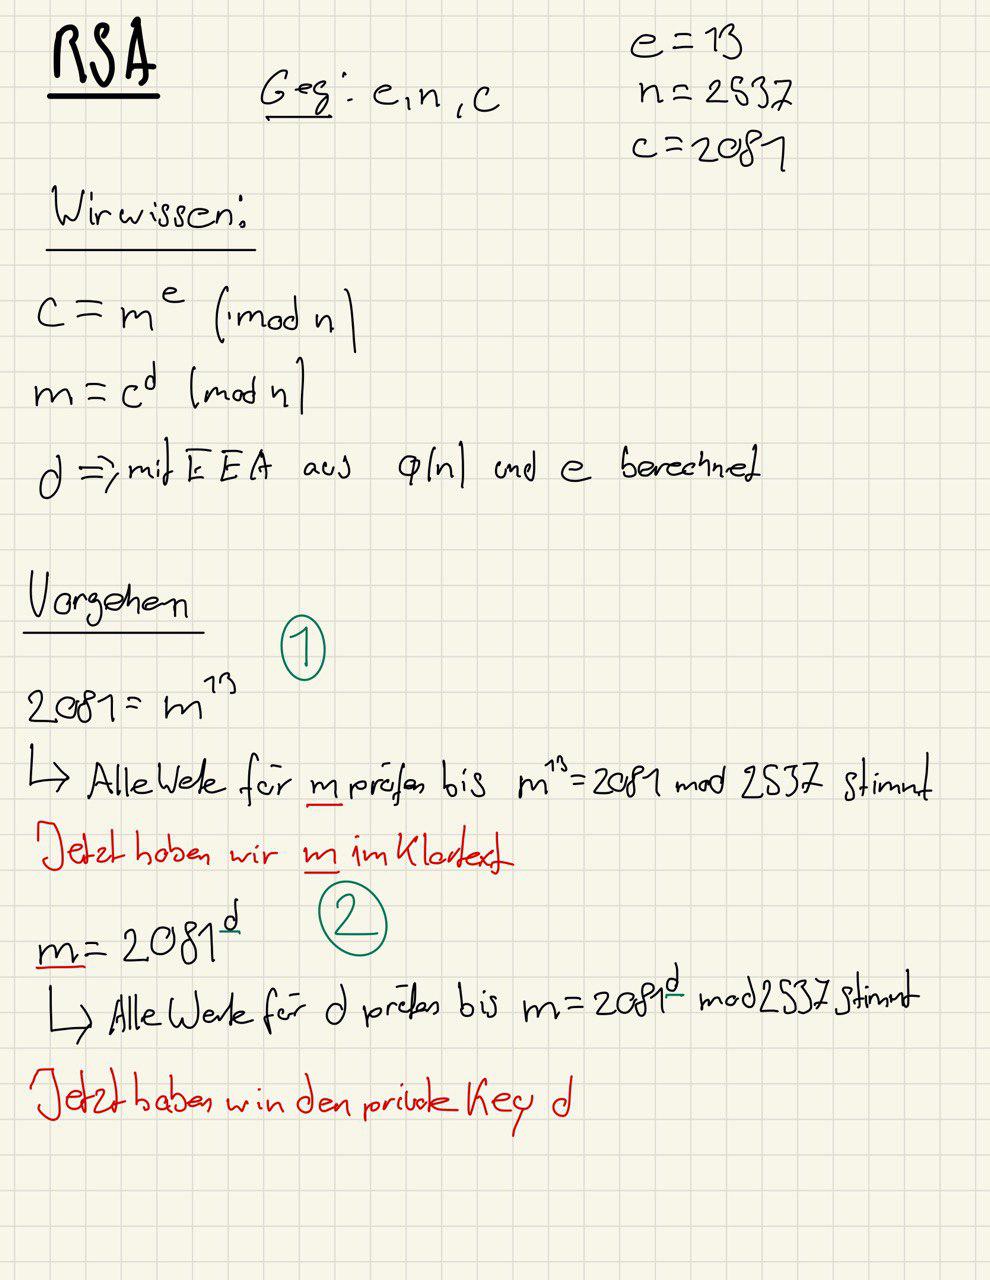 RSA
Geg: e, n, c
e = 13
n = 2537
c = 2081
Wir wissen:
c = m^e (mod n)
m = c^d (mod n)
d => mit EEA aus φ(n) und e berechnet
Vorgehen
1
2081 = m^13
↳ Alle Werte für m prüfen bis m^13 = 2081 mod 2537 stimmt
Jetzt haben wir m im Klartext
2
m = 2081^d
↳ Alle Werte für d prüfen bis m = 2081^d mod 2537 stimmt
Jetzt haben wir den private Key d